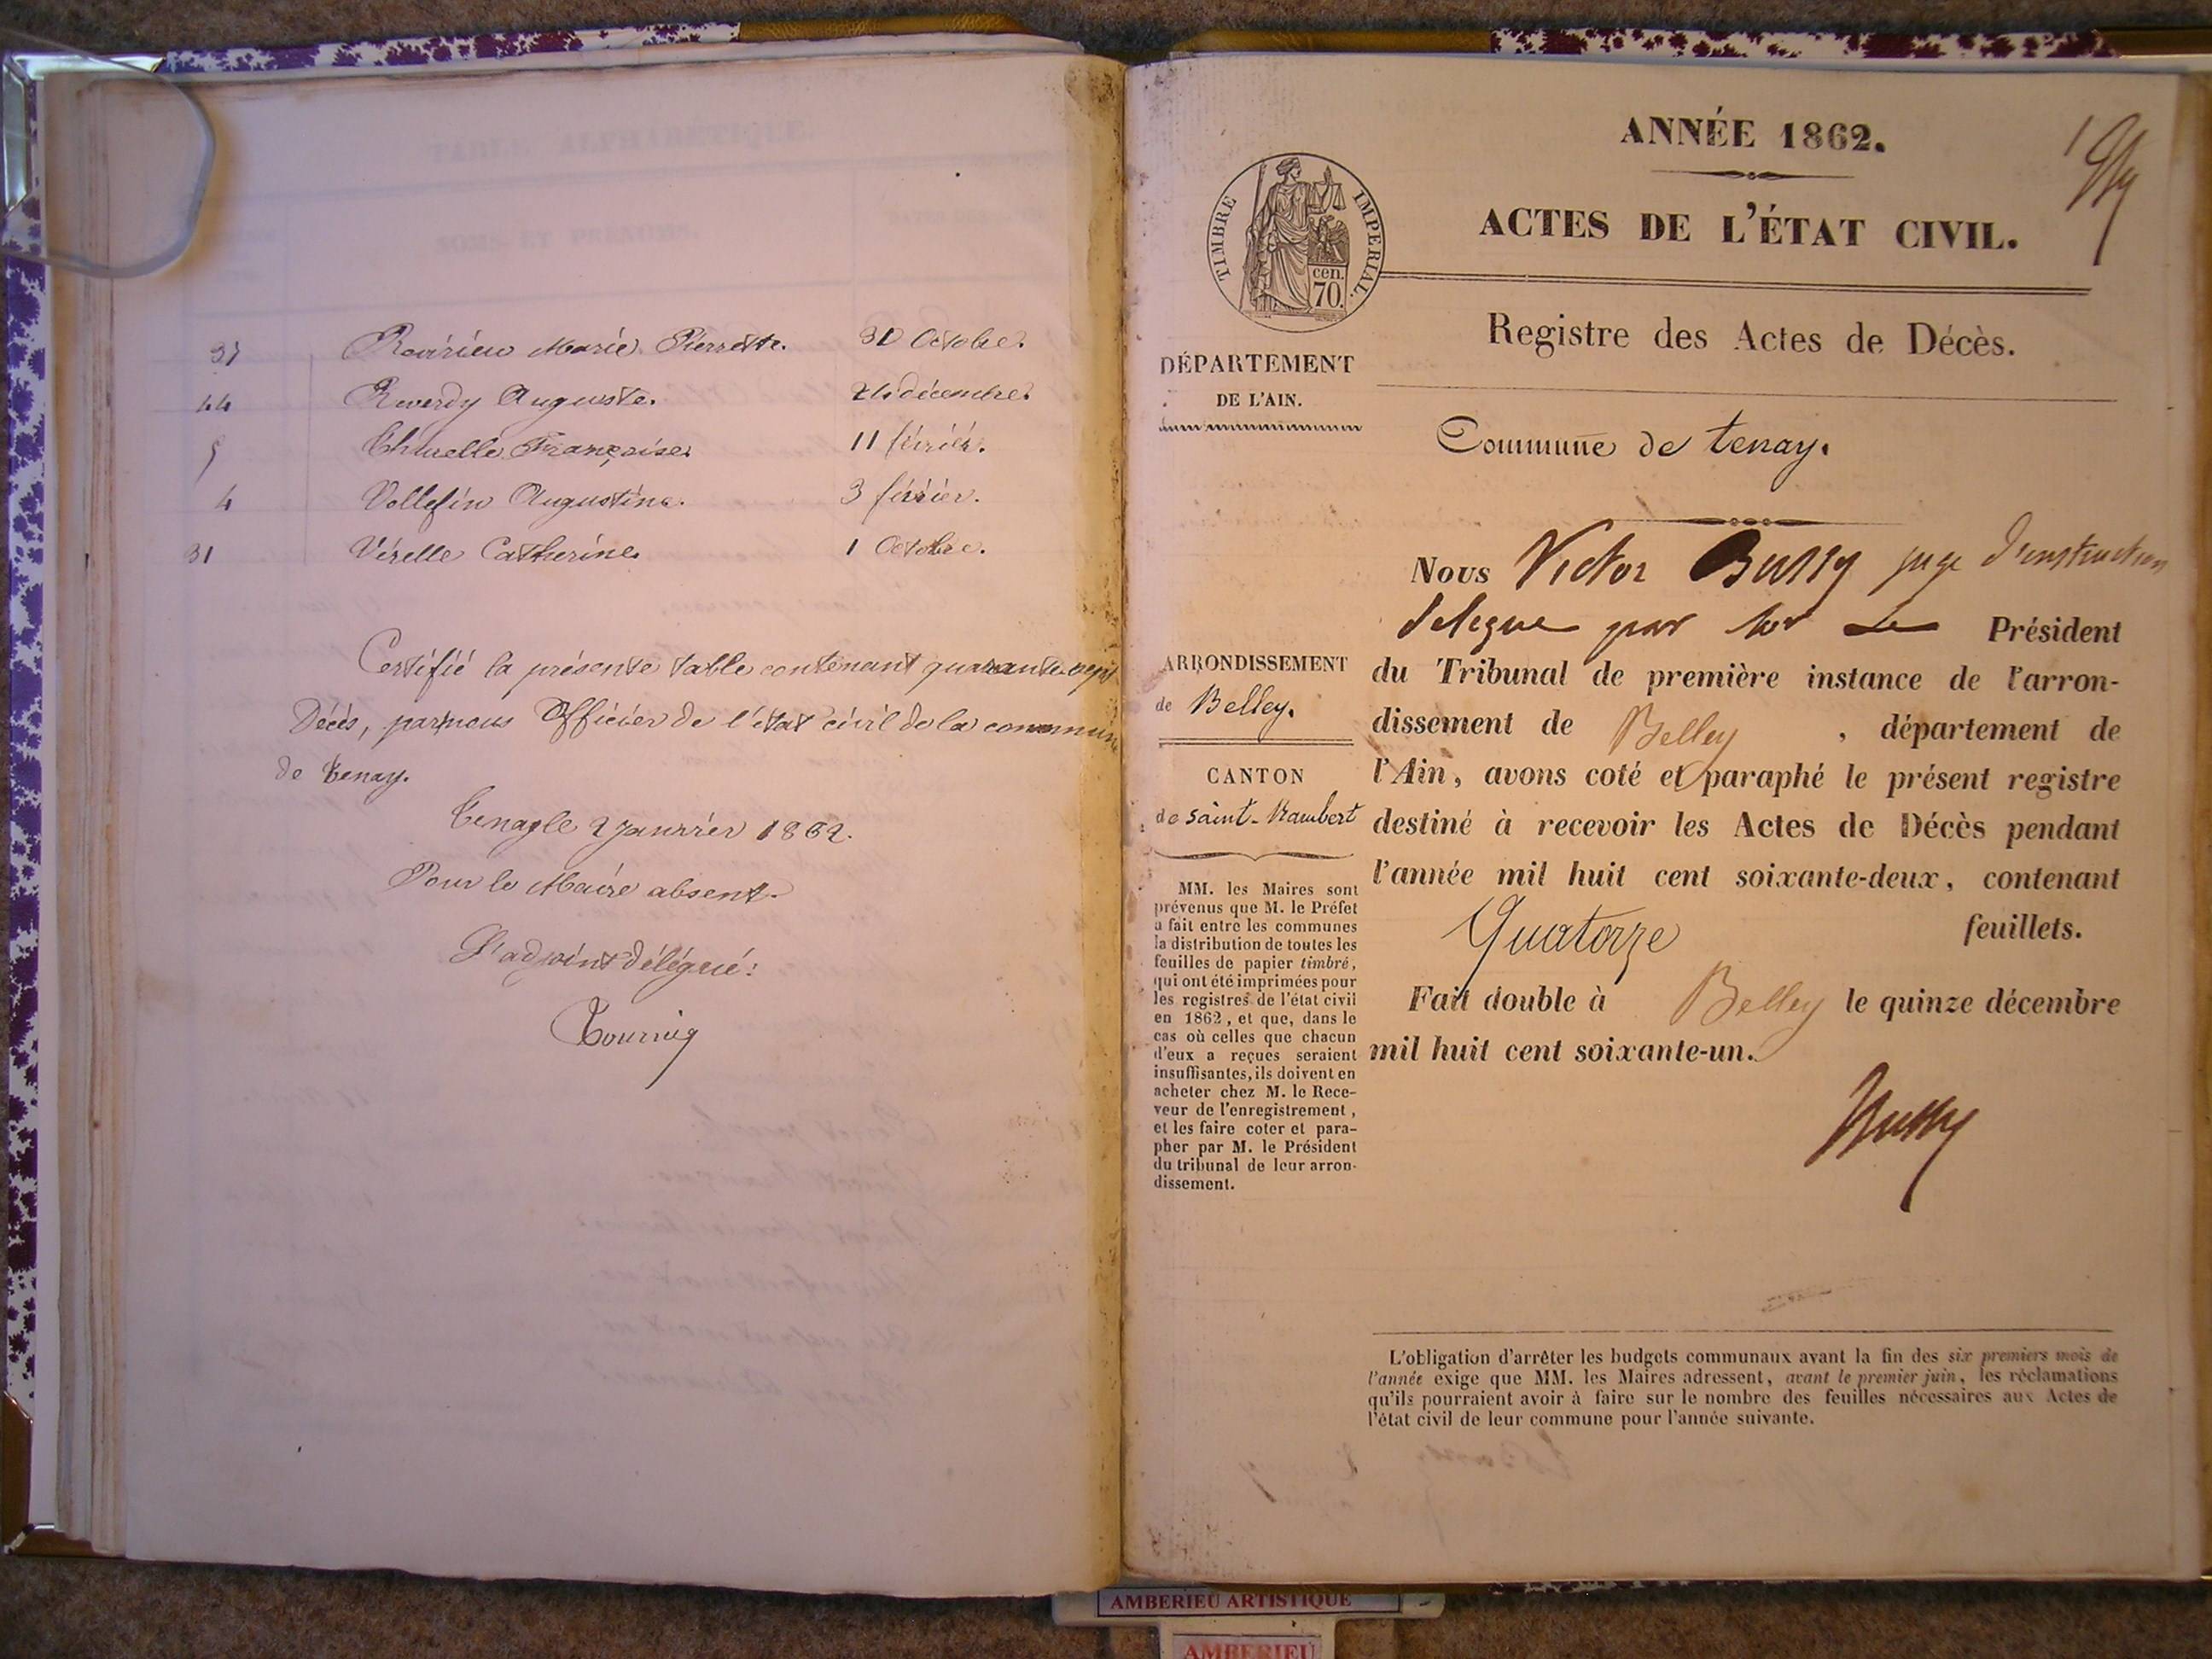 37 Ravirieu Marie Pierrette. 30 Octobre.
44 Reverdy Auguste. 24 décembre.
5 Françoise. 11 février.
4 Vollefin Augustine. 3 février.
31 Vérelle Catherine. 1 Octobre.
Certifié la présente table contenant quarante-sept
Décès, par nous Officier de l'état civil de la commune
de tenay.
Tenay le 2 janvier 1862.
Pour le Maire absent.
L'adjoint délégué:
ANNÉE 1862.
ACTES DE L'ÉTAT CIVIL.
TIMBRE IMPERIAL.
cen.
70.
Registre des Actes de Décès.
DÉPARTEMENT
DE L'AIN.
Commune de tenay.
Nous Victor Bussy juge d'instruction
delegue par Mr Le Président
du Tribunal de première instance de l'arron-
dissement de Belley, département de
l'Ain, avons coté et paraphé le présent registre
destiné à recevoir les Actes de Décès pendant
l'année mil huit cent soixante-deux, contenant
Quatorze feuillets.
Fait double à Belley le quinze décembre
mil huit cent soixante-un.
Bussy
ARRONDISSEMENT
de Belley.
CANTON
de saint-Rambert
MM. les Maires sont
prévenus que M. le Préfet
a fait entre les communes
la distribution de toutes les
feuilles de papier timbré,
qui ont été imprimées pour
les registres de l'état civil
en 1862, et que, dans le
cas où celles que chacun
d'eux a reçues seraient
insuffisantes, ils doivent en
acheter chez M. le Rece-
veur de l'enregistrement,
et les faire coter et para-
pher par M. le Président
du tribunal de leur arron-
dissement.
L'obligation d'arrêter les budgets communaux avant la fin des six premiers mois de
l'année exige que MM. les Maires adressent, avant le premier juin, les réclamations
qu'ils pourraient avoir à faire sur le nombre des feuilles nécessaires aux Actes de
l'état civil de leur commune pour l'année suivante.
AMBERIEU ARTISTIQUE
AMBERIEU